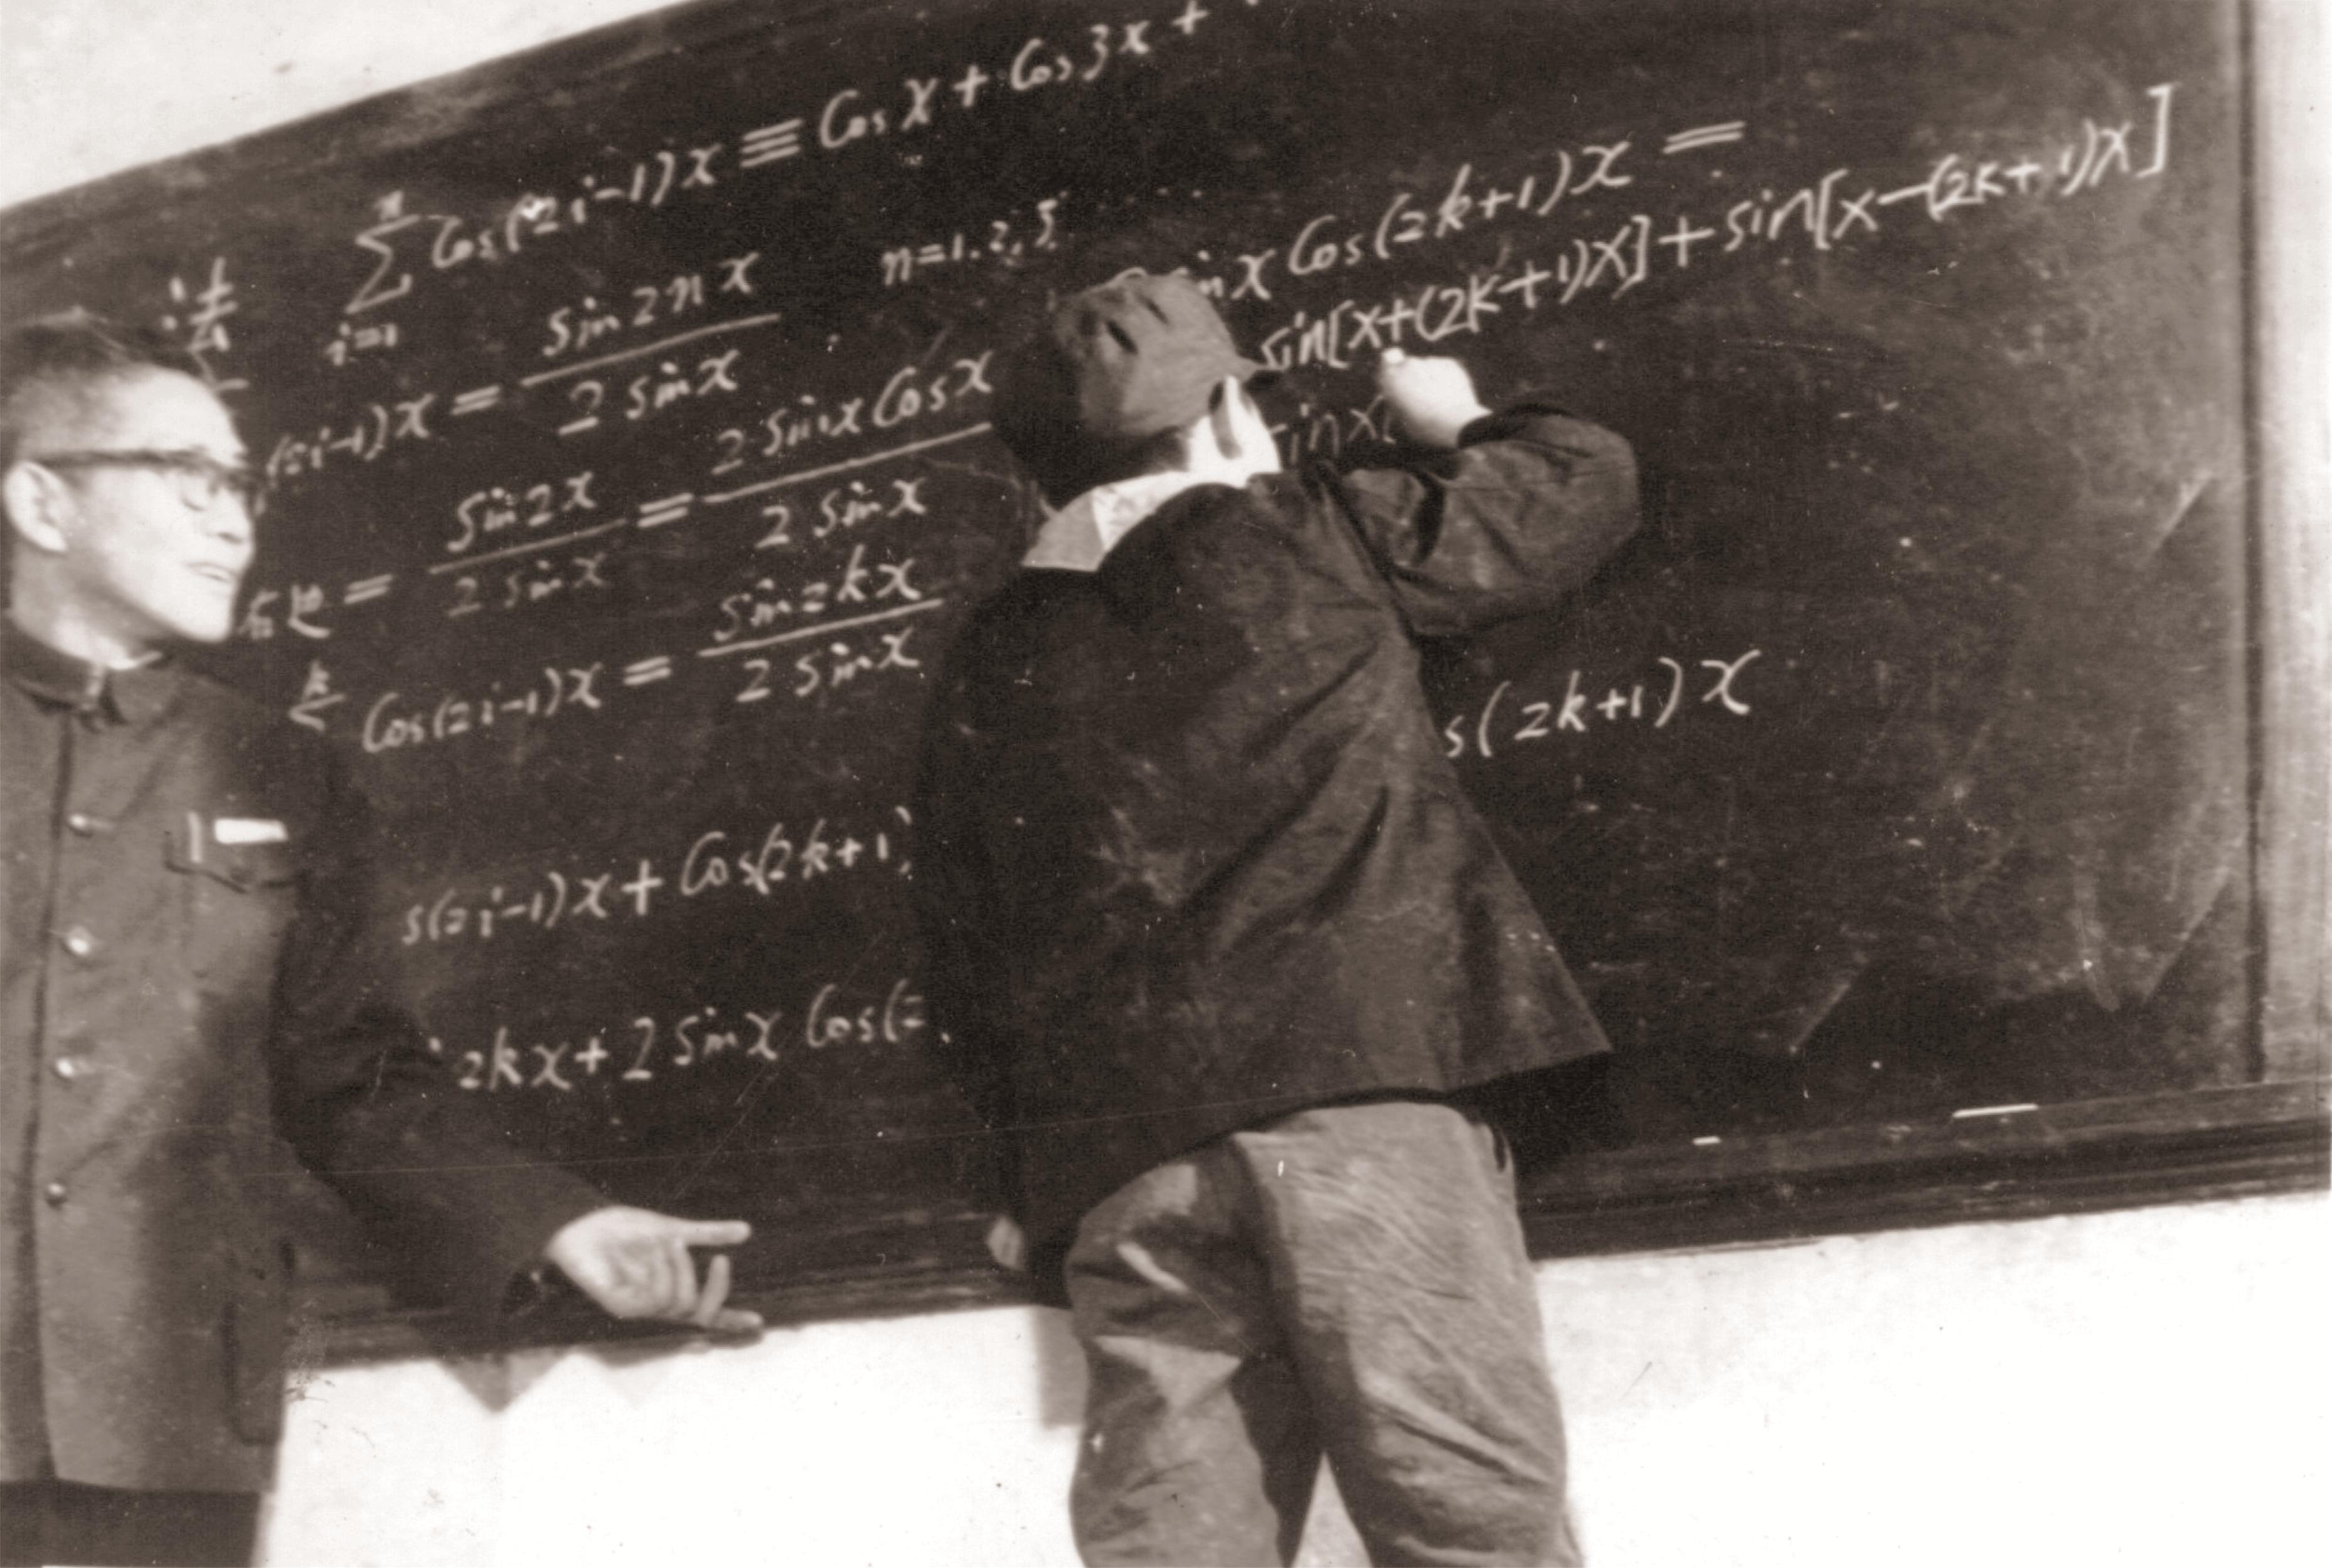 法 ∑ i=1 n Cos(2i-1)x ≡ Cos x + Cos 3x +
(2i-1)x = sin 2nx / 2 sin x n=1.2.3
右边 = sin 2x / 2 sin x = 2 sin x Cos x / 2 sin x
k ∑ Cos(2i-1)x = sin 2kx / 2 sin x
s(2i-1)x + Cos(2k+1)
2kx + 2 sin x Cos(2
inx Cos(2k+1)x =
sin[x+(2k+1)x] + sin[x-(2k+1)x]
inx
s(2k+1)x